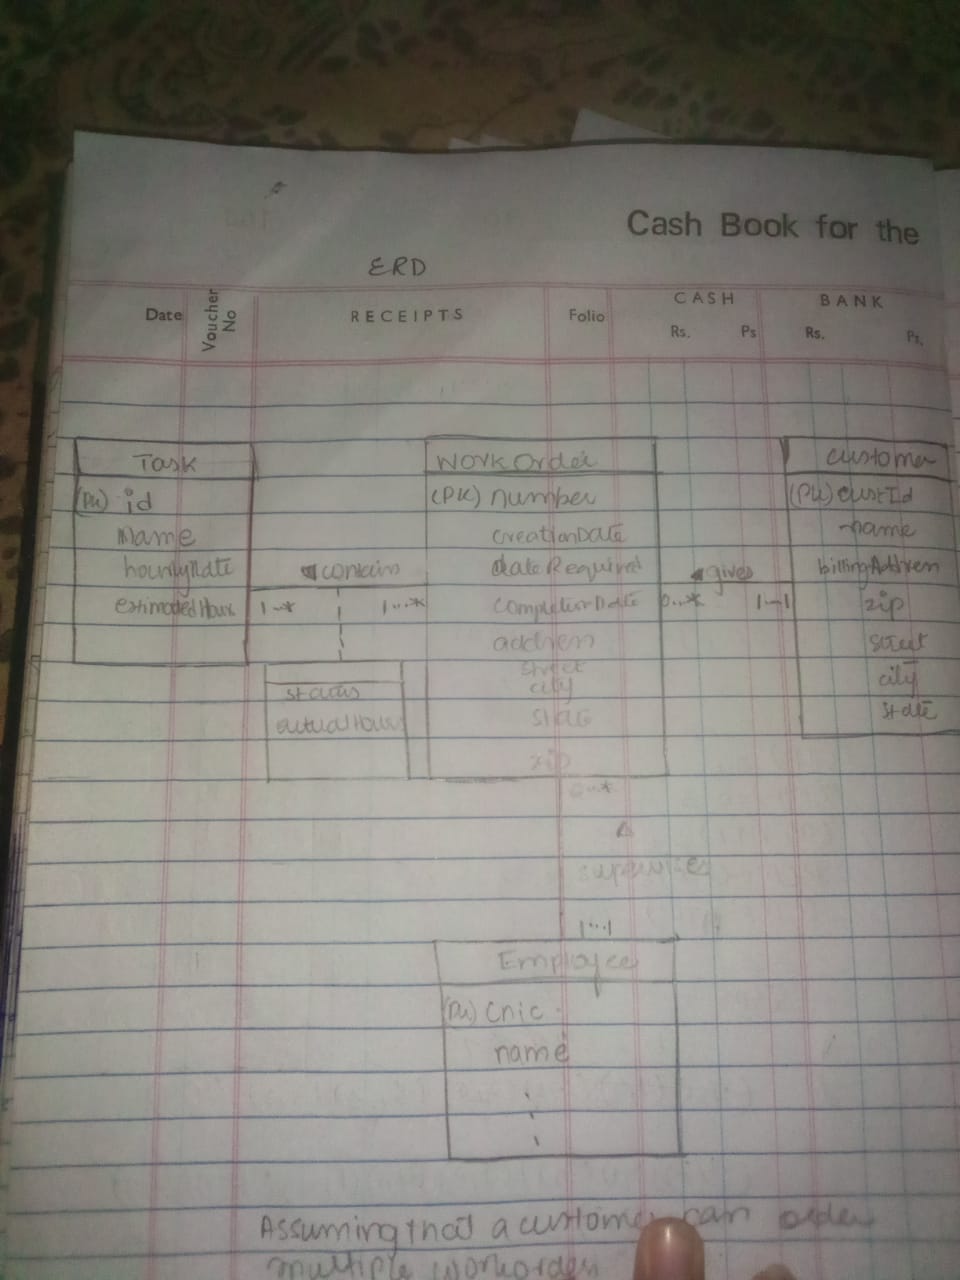 Cash Book for the
ERD
Date
Voucher No
RECEIPTS
Folio
CASH
Rs.
Ps
BANK
Rs.
Ps.
Task
(PK) id
Name
hourlyRate
estimatedHour
contains
1...*
1...*
status
actualHour
WorkOrder
(PK) number
creationDate
dateRequired
completionDate
address
street
city
state
zip
gives
0...*
1...1
customer
(PK) custId
name
billingAddress
zip
street
city
state
0...*
supervises
1...1
Employee
(PK) cnic
name
Assuming that a customer can order
multiple workorder